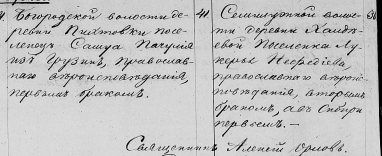 Богородской волости де-
ревни Пихтовки посе-
ленец Саица Пачулия
изъ Грузинъ, православ-
наго вѣроисповѣданія,
первымъ бракомъ.
41
Семилужной волос-
ти деревни
евой Поселенка Лу-
керья
православнаго вѣроис-
повѣданія, вторымъ
бракомъ, а въ Сибири
первымъ. —
Священникъ Алексѣй Орловъ.